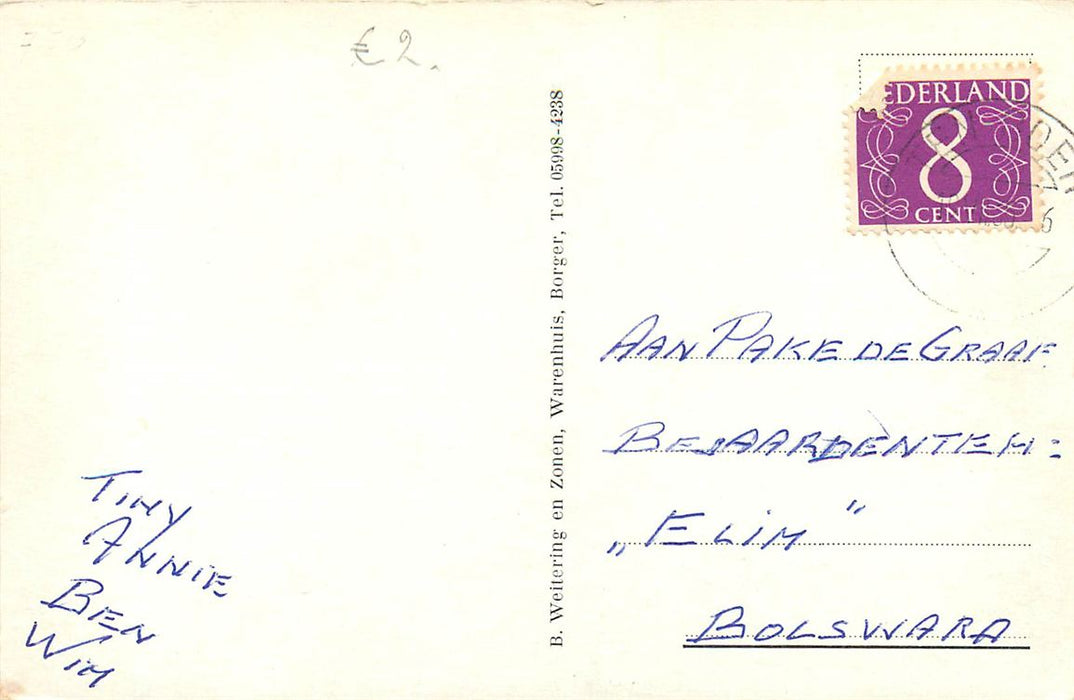 € 2.
NEDERLAND
8
CENT
B. Weitering en Zonen, Warenhuis, Borger, Tel. 05998-4238
AAN PAKE DE GRAAF
BEJAARDENTEH:
„ELIM"
BOLSWARD
TINY
ANNIE
BEN
WIM